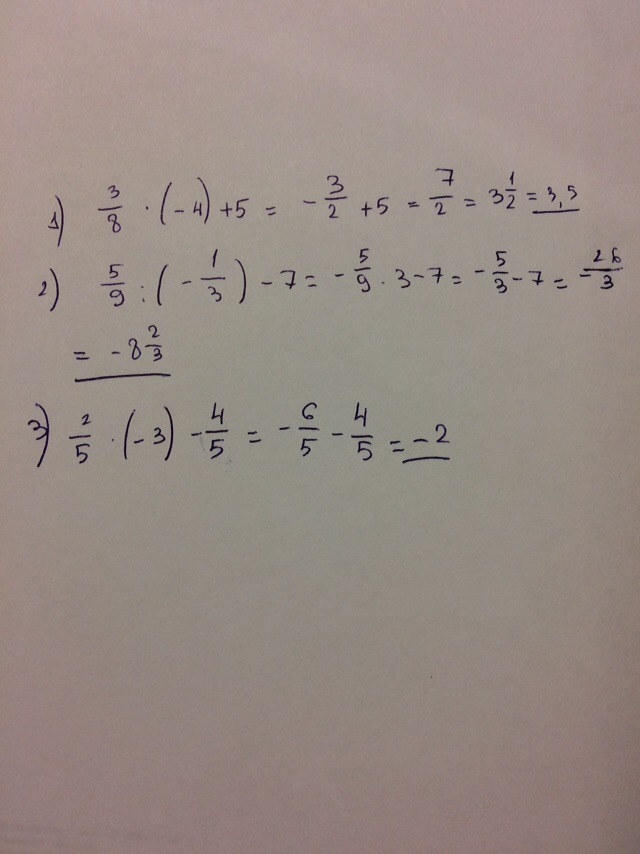 1) 3/8 · (-4) + 5 = -3/2 + 5 = 7/2 = 3 1/2 = 3,5
2) 5/9 : (-1/3) - 7 = -5/9 · 3 - 7 = -5/3 - 7 = -26/3
= -8 2/3
3) 2/5 · (-3) - 4/5 = -6/5 - 4/5 = -2